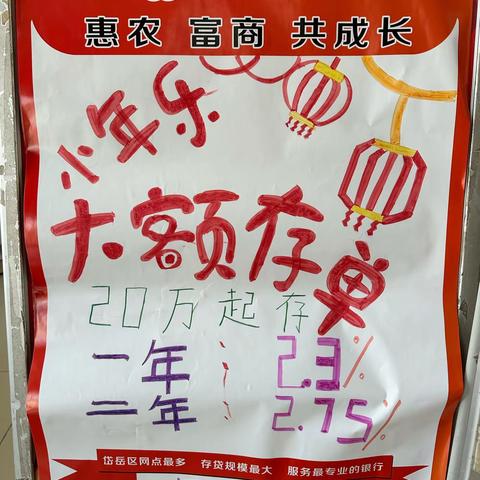 惠农 富商 共成长
小年乐
大额存单
20万起存
一年: 2.3%
二年: 2.75%
岱岳区网点最多 存贷规模最大 服务最专业的银行